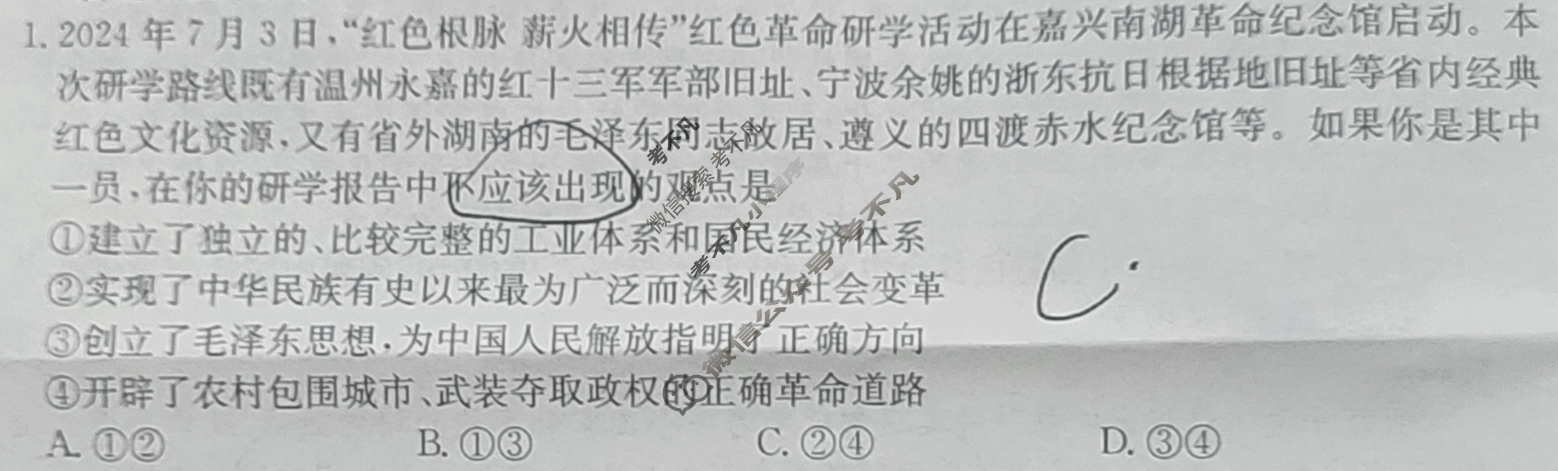 1. 2024 年 7 月 3 日,“红色根脉 薪火相传”红色革命研学活动在嘉兴南湖革命纪念馆启动。本
次研学路线既有温州永嘉的红十三军军部旧址、宁波余姚的浙东抗日根据地旧址等省内经典
红色文化资源,又有省外湖南的毛泽东同志故居、遵义的四渡赤水纪念馆等。如果你是其中
一员,在你的研学报告中不应该出现的观点是
①建立了独立的、比较完整的工业体系和国民经济体系
②实现了中华民族有史以来最为广泛而深刻的社会变革
③创立了毛泽东思想,为中国人民解放指明了正确方向
④开辟了农村包围城市、武装夺取政权的正确革命道路
A. ①② B. ①③ C. ②④ D. ③④
C.
考不凡
微信搜索 考不凡
考不凡小程序
微信公众号 考不凡